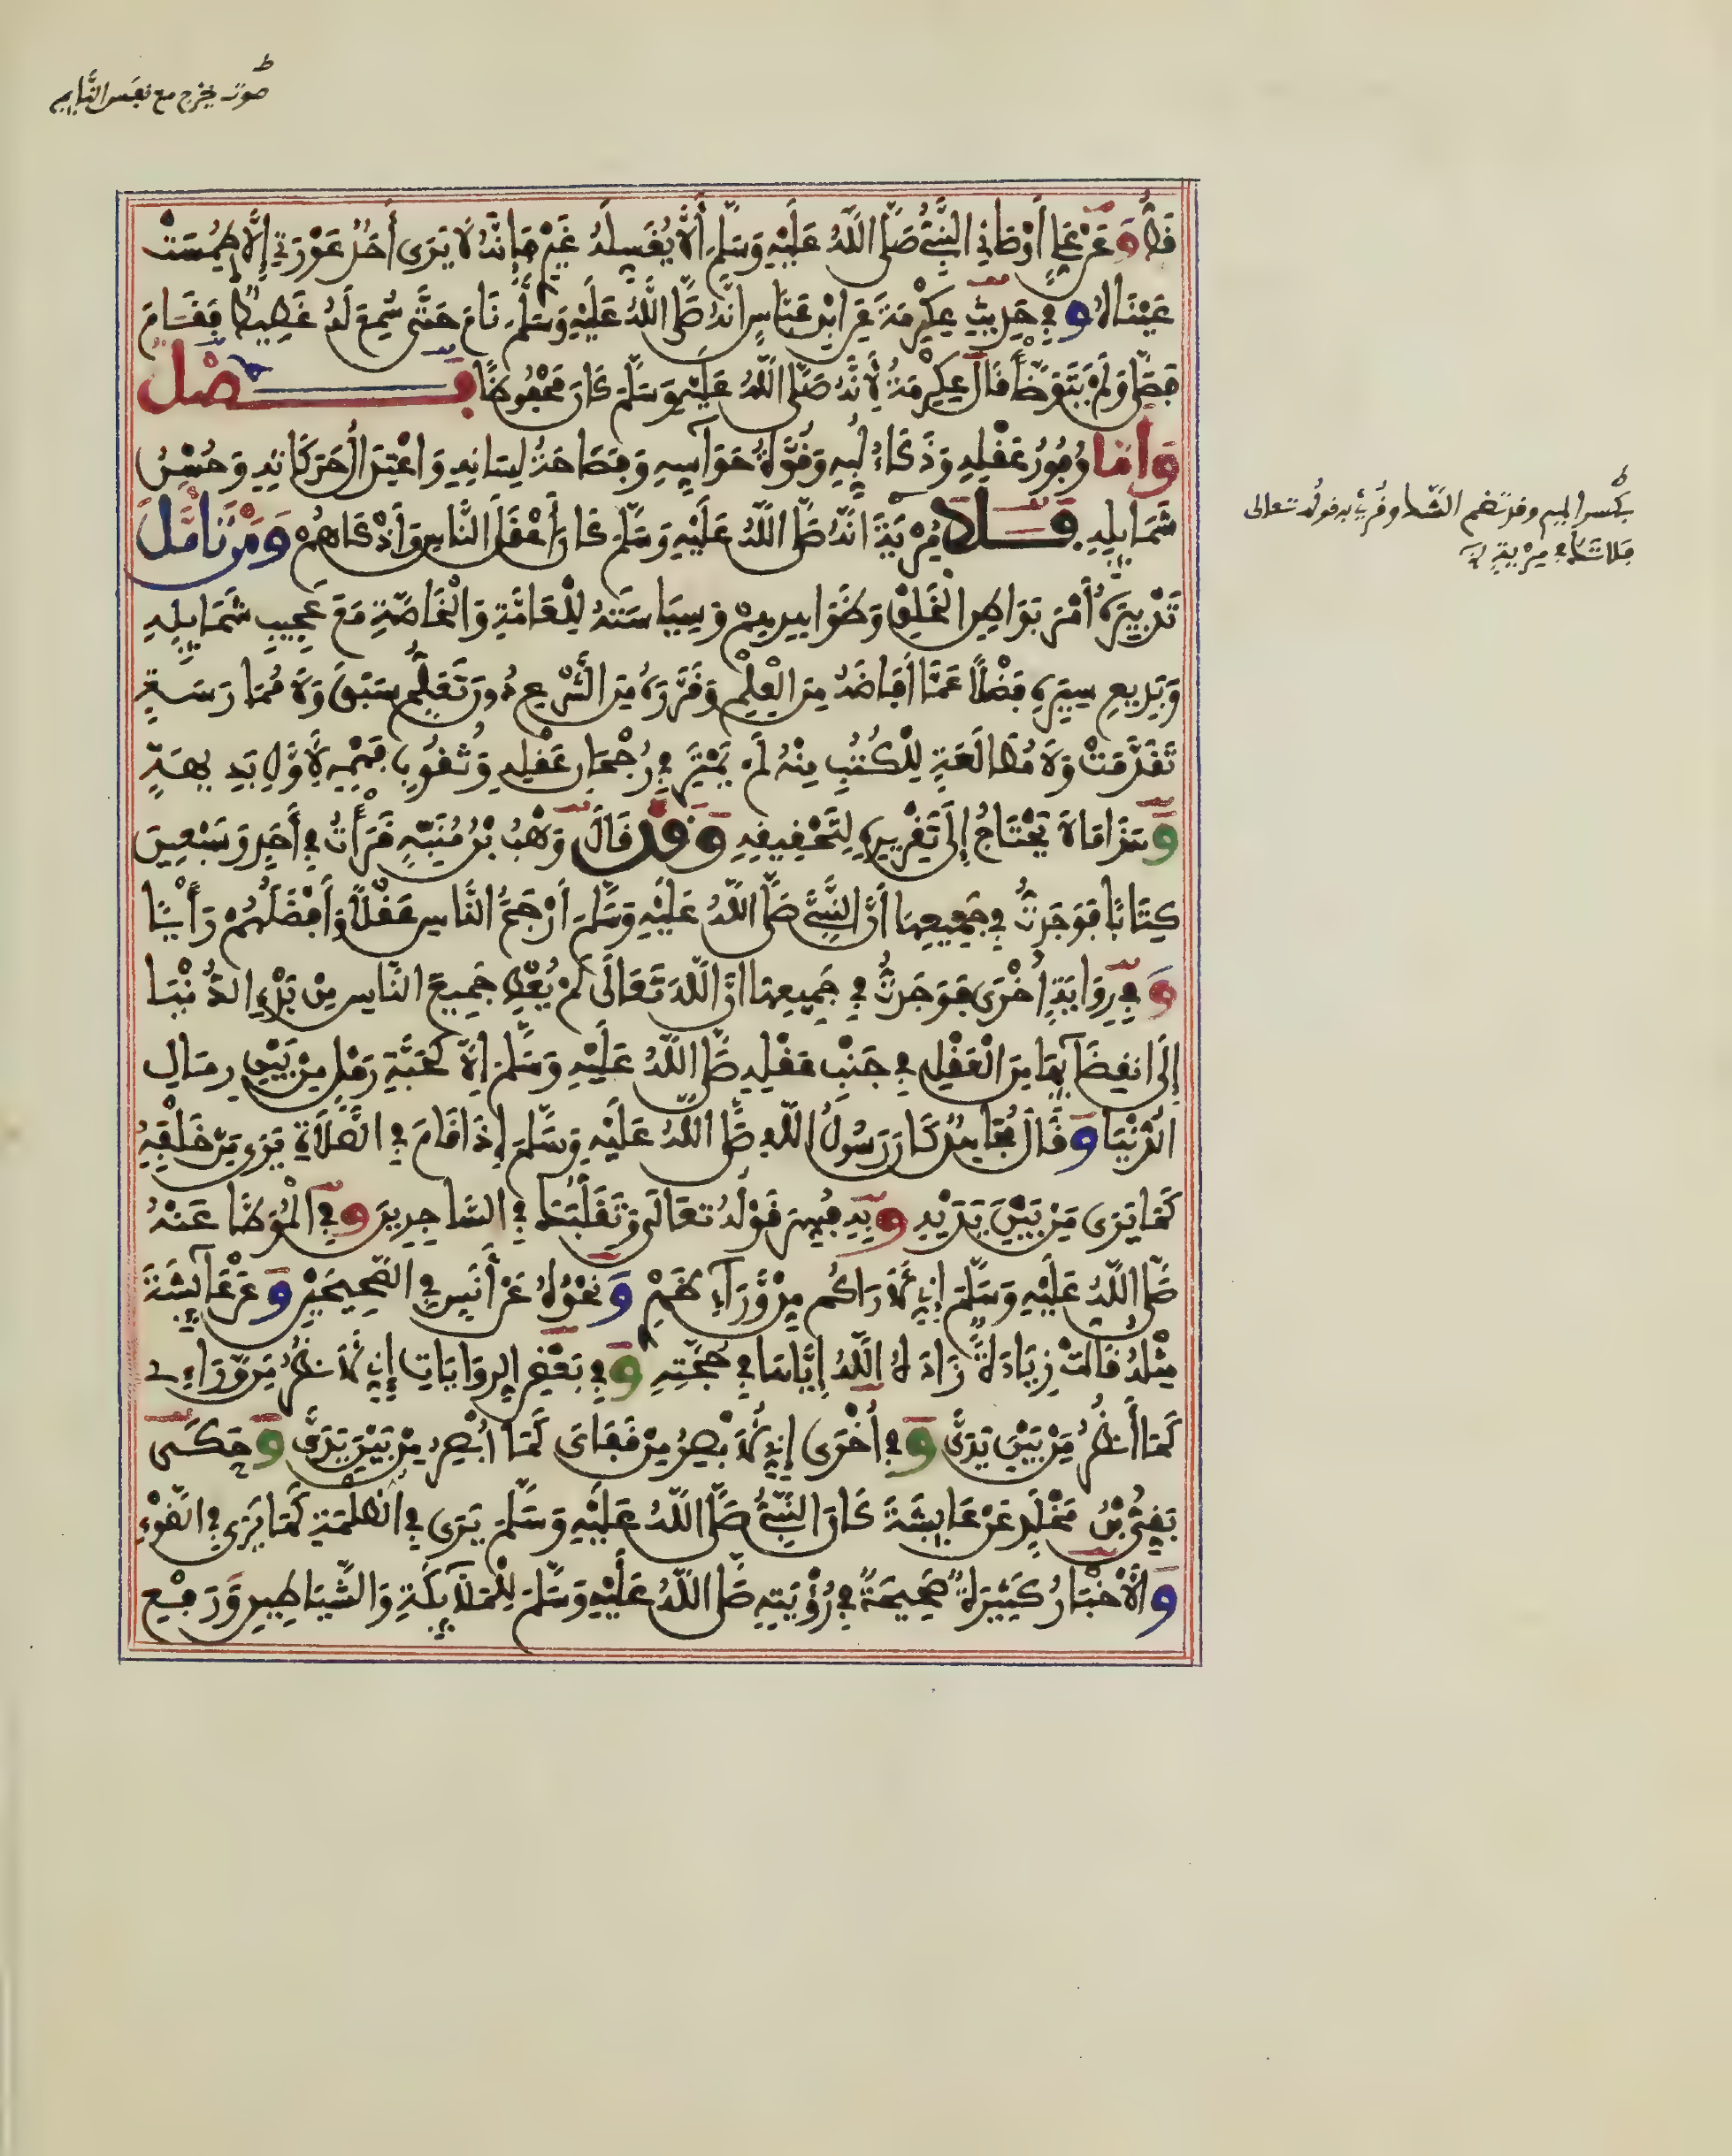 صوت يخرج مع نفس النَّايم
قَطُّ وَعَنْ عَلِيٍّ أَوْصَانِي النَّبِيُّ صَلَّى اللَّهُ عَلَيْهِ وَسَلَّمَ أَلَّا يُغَسِّلَهُ غَيْرِي فَإِنَّهُ لَا يَرَى أَحَدٌ عَوْرَتِي إِلَّا طُمِسَتْ
عَيْنَاهُ وَفِي حَدِيثِ عِكْرِمَةَ عَنِ ابْنِ عَبَّاسٍ أَنَّهُ صَلَّى اللَّهُ عَلَيْهِ وَسَلَّمَ نَامَ حَتَّى سُمِعَ لَهُ غَطِيطٌ فَقَامَ
فَصَلَّى وَلَمْ يَتَوَضَّأْ قَالَ عِكْرِمَةُ لِأَنَّهُ صَلَّى اللَّهُ عَلَيْهِ وَسَلَّمَ كَانَ مَحْفُوظًا فَصْلٌ
وَأَمَّا وُفُورُ عَقْلِهِ وَذَكَاءُ لُبِّهِ وَقُوَّةُ حَوَآسِّهِ وَفَصَاحَةُ لِسَانِهِ وَاعْتِدَالُ حَرَكَاتِهِ وَحُسْنُ
شَمَايِلِهِ فَلَا مِرْيَةَ أَنَّهُ صَلَّى اللَّهُ عَلَيْهِ وَسَلَّمَ كَانَ أَعْقَلَ النَّاسِ وَأَذْكَاهُمْ وَمَنْ تَأَمَّلَ
بكسر الميم وقد تضم الشا وقرئ به قوله تعالى
فلا تك في مرية
تَدْبِيرَهُ أَمْرَ بَوَاطِنِ الْخَلْقِ وَظَوَاهِرِهِمْ وَسِيَاسَتَهُ لِلْعَامَّةِ وَالْخَاصَّةِ مَعَ عَجِيبِ شَمَايِلِهِ
وَبَدِيعِ سِيَرِهِ فَضْلًا عَمَّا أَفَاضَهُ مِنَ الْعِلْمِ وَقَرَّرَهُ مِنَ الشَّرْعِ دُونَ تَعَلُّمٍ سَبَقَ وَلَا مُمَارَسَةٍ
تَقَدَّمَتْ وَلَا مُطَالَعَةٍ لِلْكُتُبِ مِنْهُ لَمْ يَمْتَرِ فِي رُجْحَانِ عَقْلِهِ وَثُقُوبِ فَهْمِهِ لِأَوَّلِ بَدِيهَةٍ
وَهَذَا مَا لَا يَحْتَاجُ إِلَى تَقْرِيرِهِ لِتَحْقِيقِهِ وَقَدْ قَالَ وَهْبُ بْنُ مُنَبِّهٍ قَرَأْتُ فِي أَحَدٍ وَسَبْعِينَ
كِتَابًا فَوَجَدْتُ فِي جَمِيعِهَا أَنَّ النَّبِيَّ صَلَّى اللَّهُ عَلَيْهِ وَسَلَّمَ أَرْجَحُ النَّاسِ عَقْلًا وَأَفْضَلُهُمْ رَأْيًا
وَفِي رِوَايَةٍ أُخْرَى فَوَجَدْتُ فِي جَمِيعِهَا أَنَّ اللَّهَ تَعَالَى لَمْ يُعْطِ جَمِيعَ النَّاسِ مِنْ بَدْءِ الدُّنْيَا
إِلَى انْقِضَآئِهَا مِنَ الْعَقْلِ فِي جَنْبِ عَقْلِهِ صَلَّى اللَّهُ عَلَيْهِ وَسَلَّمَ إِلَّا كَحَبَّةِ رَمْلٍ مِنْ بَيْنِ رِمَالِ
الدُّنْيَا وَقَالَ مُجَاهِدٌ كَانَ رَسُولُ اللَّهِ صَلَّى اللَّهُ عَلَيْهِ وَسَلَّمَ إِذَا قَامَ فِي الصَّلَاةِ يَرَى مَنْ خَلْفَهُ
كَمَا يَرَى مَنْ بَيْنَ يَدَيْهِ وَبِهِ فُسِّرَ قَوْلُهُ تَعَالَى وَتَقَلُّبَكَ فِي السَّاجِدِينَ وَفِي الْمُوَطَّأِ عَنْهُ
صَلَّى اللَّهُ عَلَيْهِ وَسَلَّمَ إِنِّي لَأَرَاكُم مِنْ وَرَآءِ ظَهْرِي وَنَحْوُهُ عَنْ أَنَسٍ فِي الصَّحِيحَيْنِ وَعَنْ عَآيِشَةَ
مِثْلُهُ قَالَتْ زِيَادَةً زَادَهُ اللَّهُ إِيَّاهَا فِي حُجَّتِهِ وَفِي بَعْضِ الرِّوَايَاتِ إِنِّي لَأَنظُرُ مَنْ وَرَاءِي
كَمَا أَنظُرُ مَنْ بَيْنَ يَدَيَّ وَفِي أُخْرَى إِنِّي لَأُبْصِرُ مِنْ قَفَايَ كَمَا أُبْصِرُ مِنْ بَيْنِ يَدَيَّ وَحَكَى
بَقِيُّ بْنُ مَخْلَدٍ عَنْ عَايِشَةَ كَانَ النَّبِيُّ صَلَّى اللَّهُ عَلَيْهِ وَسَلَّمَ يَرَى فِي الظُّلْمَةِ كَمَا يَرَى فِي الضَّوْءِ
وَالْأَخْبَارُ كَثِيرَةٌ صَحِيحَةٌ فِي رُؤْيَتِهِ صَلَّى اللَّهُ عَلَيْهِ وَسَلَّمَ لِلْمَلَآيِكَةِ وَالشَّيَاطِينِ وَرَفْعِ